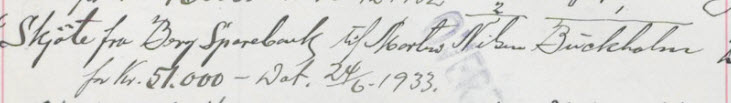 Skjöte fra Borg Sparebank til Morten Nilsen Buckholm
for Kr. 51.000 – Dat. 24/6-1933.